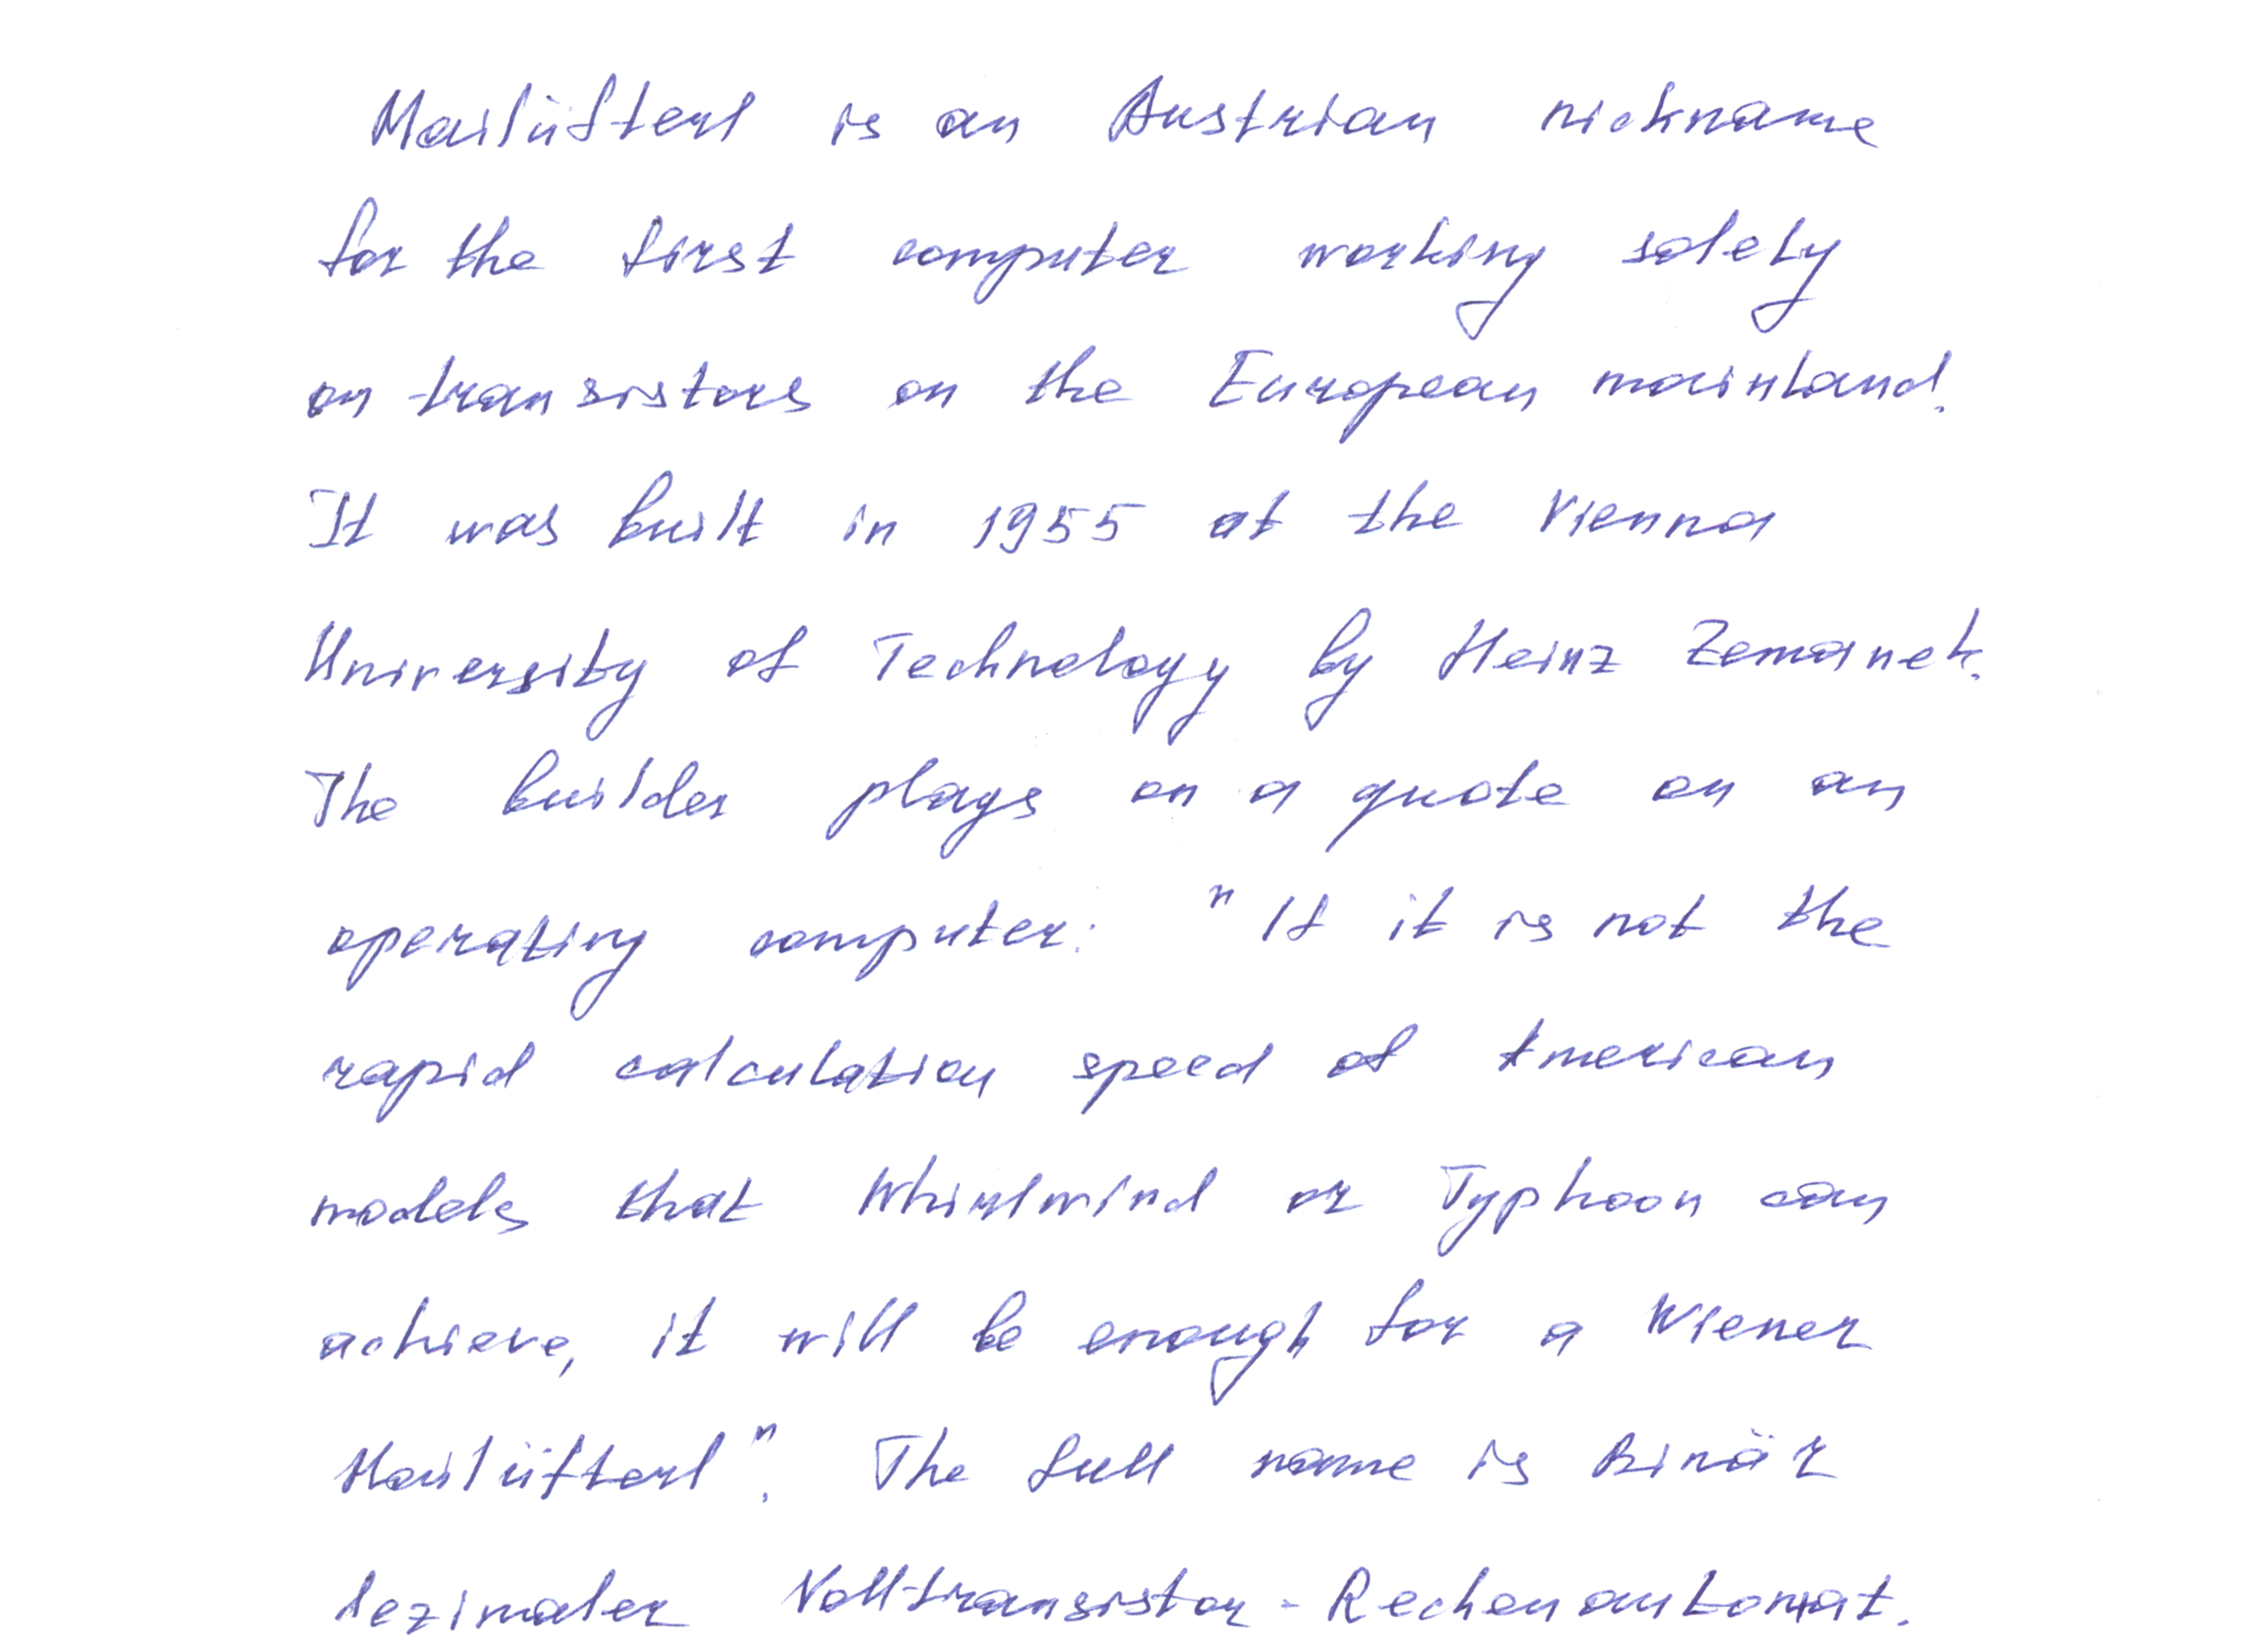 Mailüfterl is an Austrian nickname
for the first computer working solely
on transistors on the European mainland.
It was built in 1955 at the Vienna
University of Technology by Heinz Zemanek.
The builder plays on a quote on an
operating computer: "If it is not the
rapid calculation speed of American
models that Whirlwind or Typhoon can
achieve, it will be enough for a Wiener
Mailüfterl". The full name is Binär
dezimaler Volltransistor-Rechenautomat.